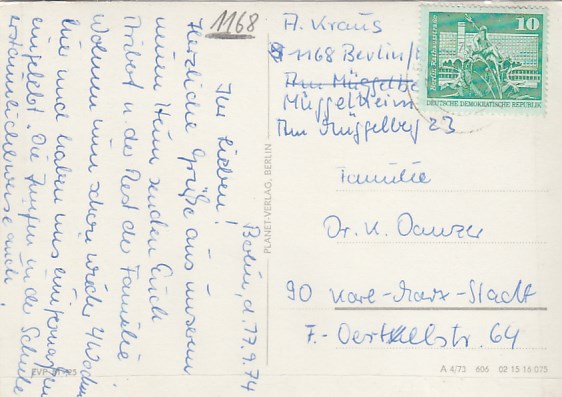 1168
Berlin, d. 17.9.74
Ihr Lieben!
Herzliche Grüße aus unserem
neuen Heim senden Euch
u. der Rest der Familie.
Wohnen nun schon wieder 4 Wochen
hier und haben uns einigermaßen
eingelebt. Die Jungen in der Schule
erstaunlicherweise auch.
EVP
PLANET-VERLAG, BERLIN
A. Kraus
1168 Berlin/
Am Müggelbe
Müggelheim
Am Müggelberg 23
10
DEUTSCHE DEMOKRATISCHE REPUBLIK
Familie
Dr. K. Danzer
90 Karl-Marx-Stadt
F.-Oertelstr. 64
A 4/73 606 02 15 16 075